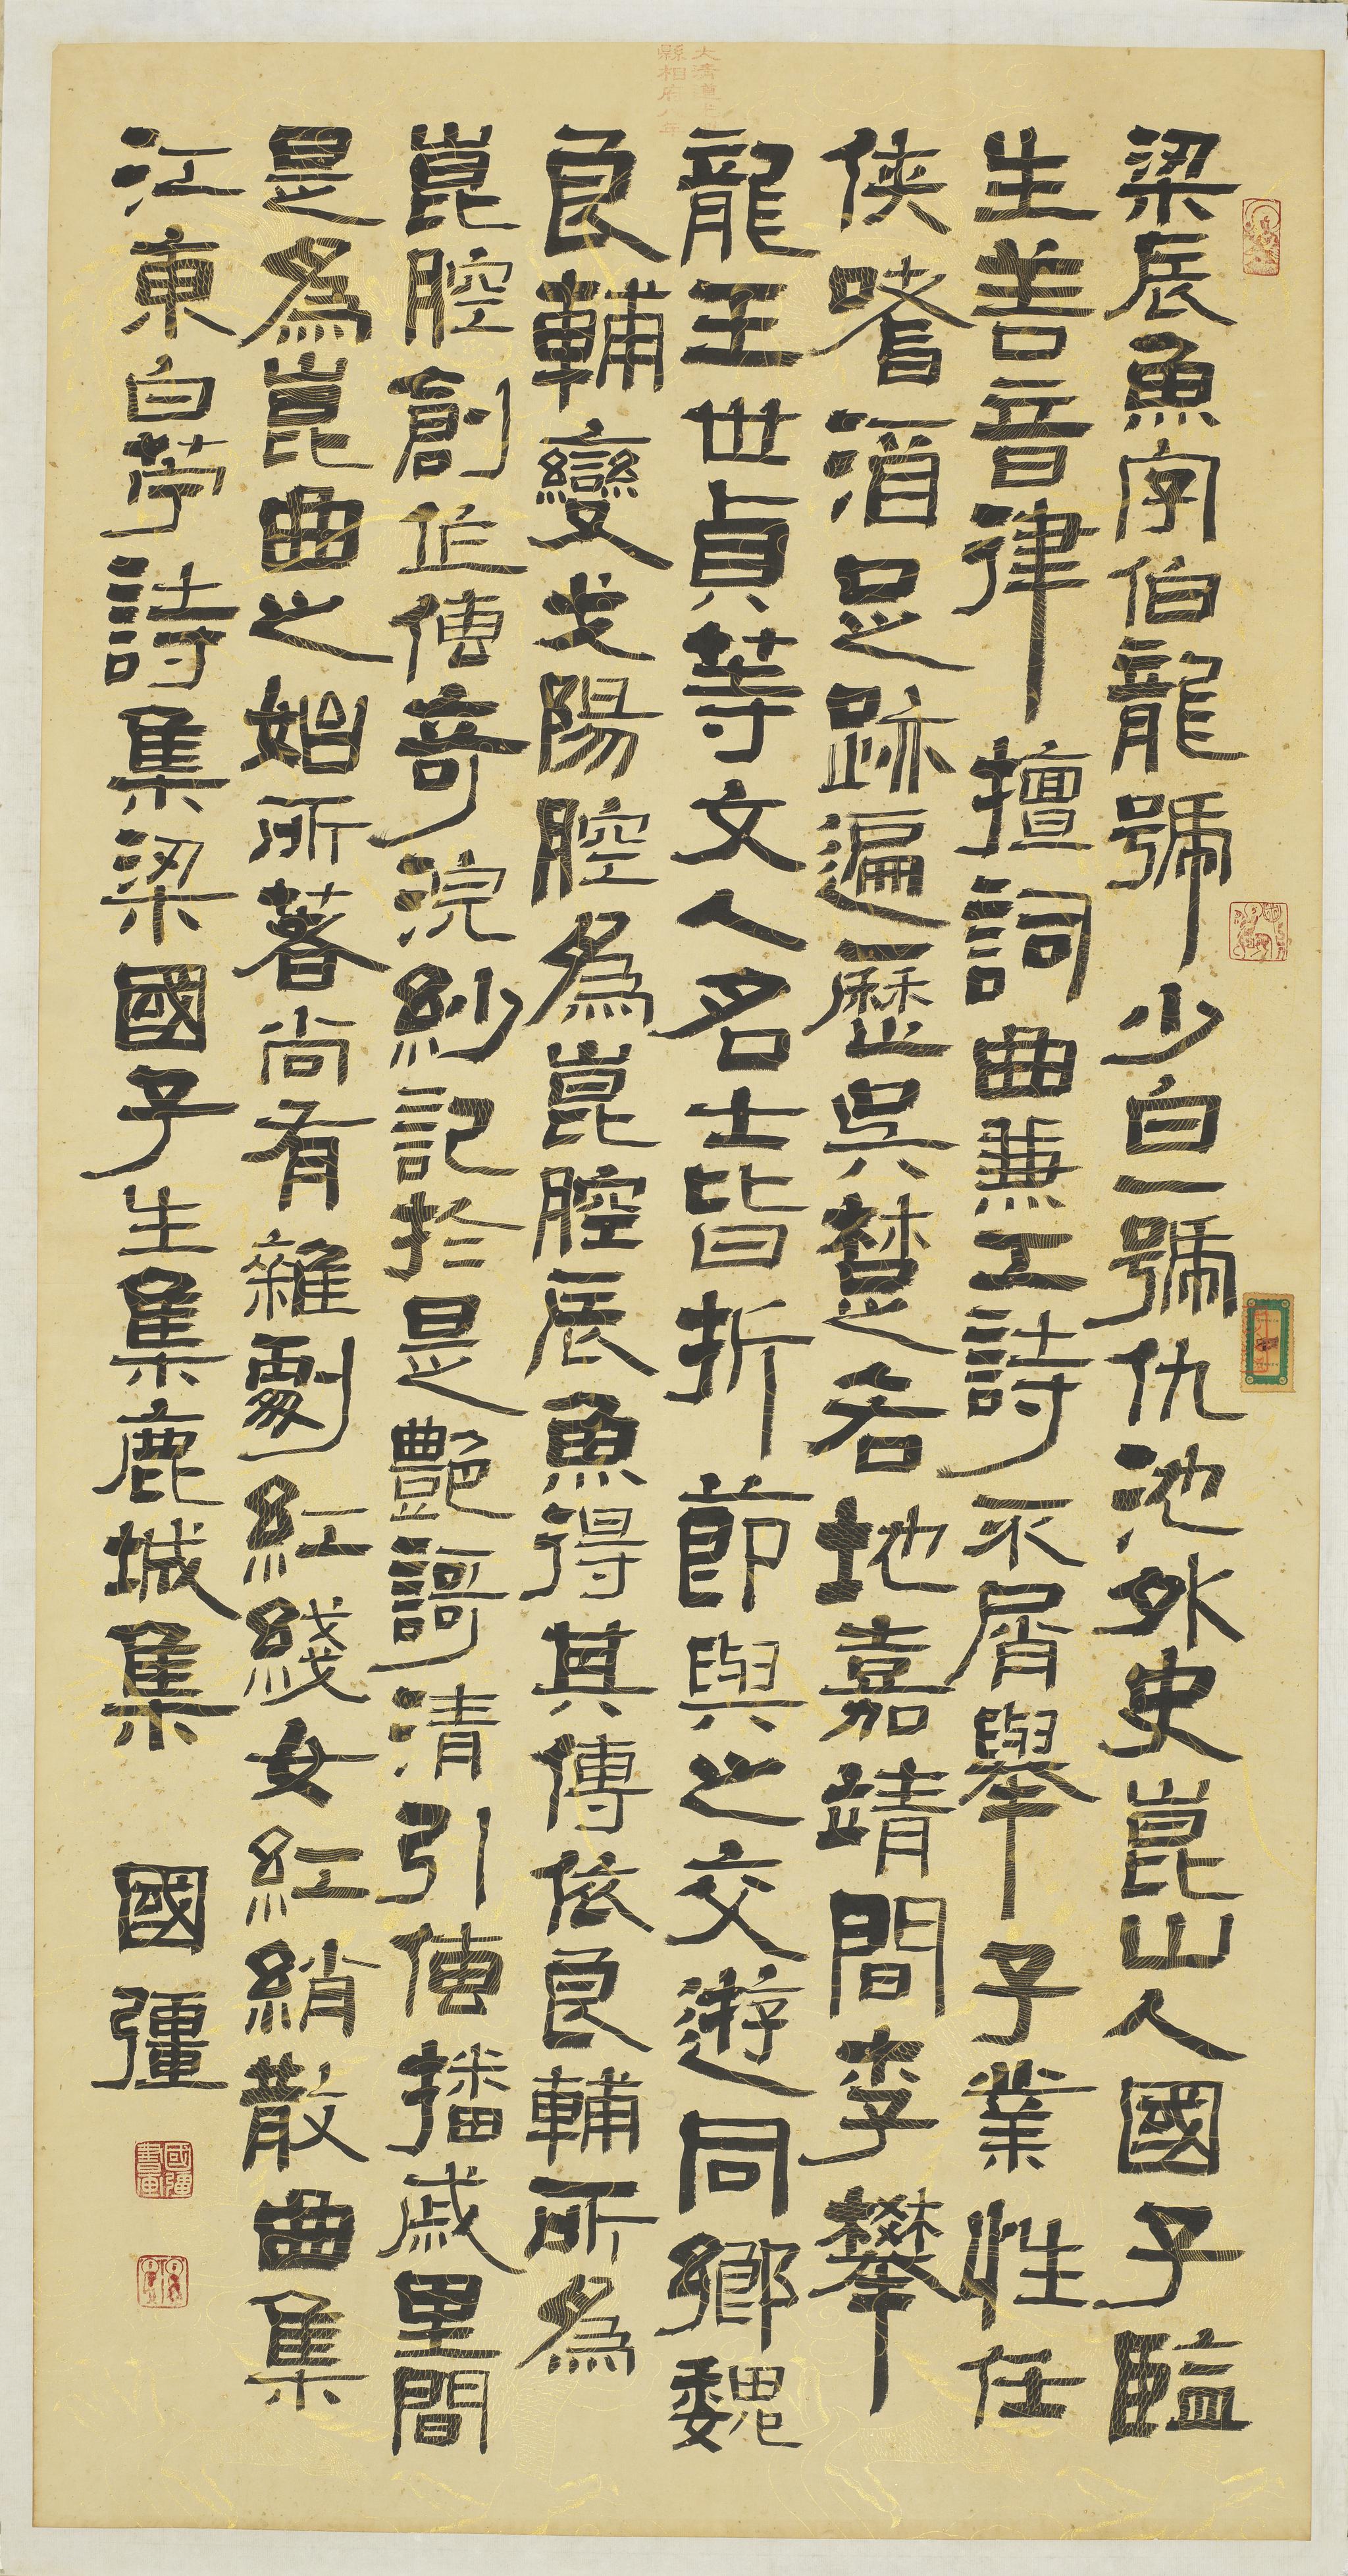 梁辰魚字伯龍號少白一號仇池外史崑山人國子監
生善音律擅詞曲兼工詩不屑舉子業性任
俠嗜酒足跡遍歷吳楚名地嘉靖間李攀
龍王世貞等文人名士皆折節與之交遊同鄉魏
良輔變弋陽腔為崑腔辰魚得其傳依良輔所為
崑腔創作傳奇浣紗記於是艷謌清引傳播戚里間
是為崑曲之始所著尚有雜劇紅綫女紅綃散曲集
江東白苧詩集梁國子生集鹿城集　國彊